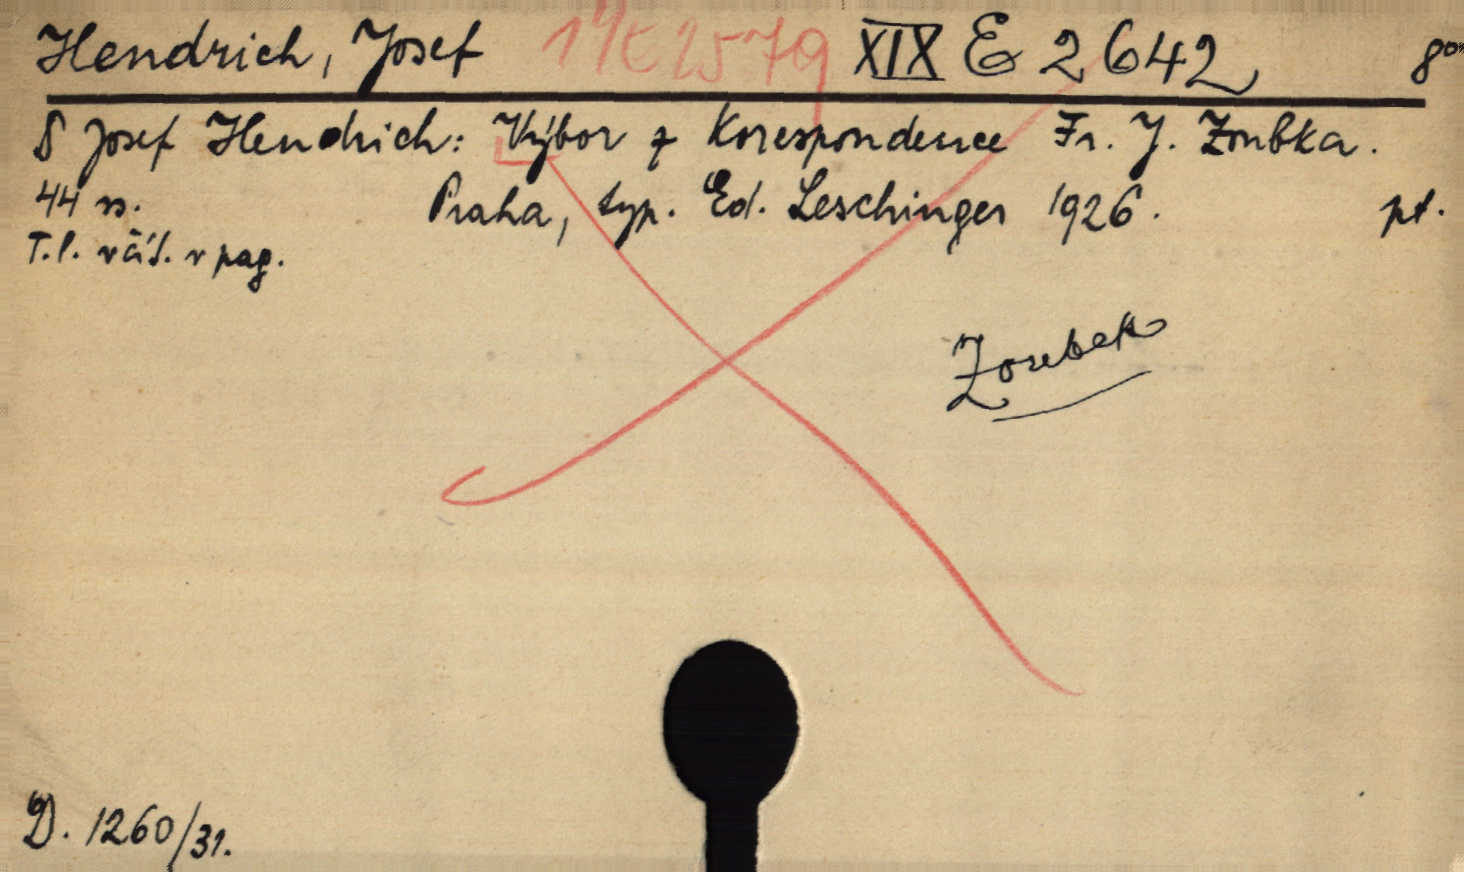 Hendrich, Josef 19E2579 XIX E 2642 8°
§ Josef Hendrich: Výbor z Korespondence Fr. J. Zoubka.
44 s. Praha, typ. Ed. Leschinger 1926. pt.
T.l. v čís. v pag.
Zoubek
D. 1260/31.